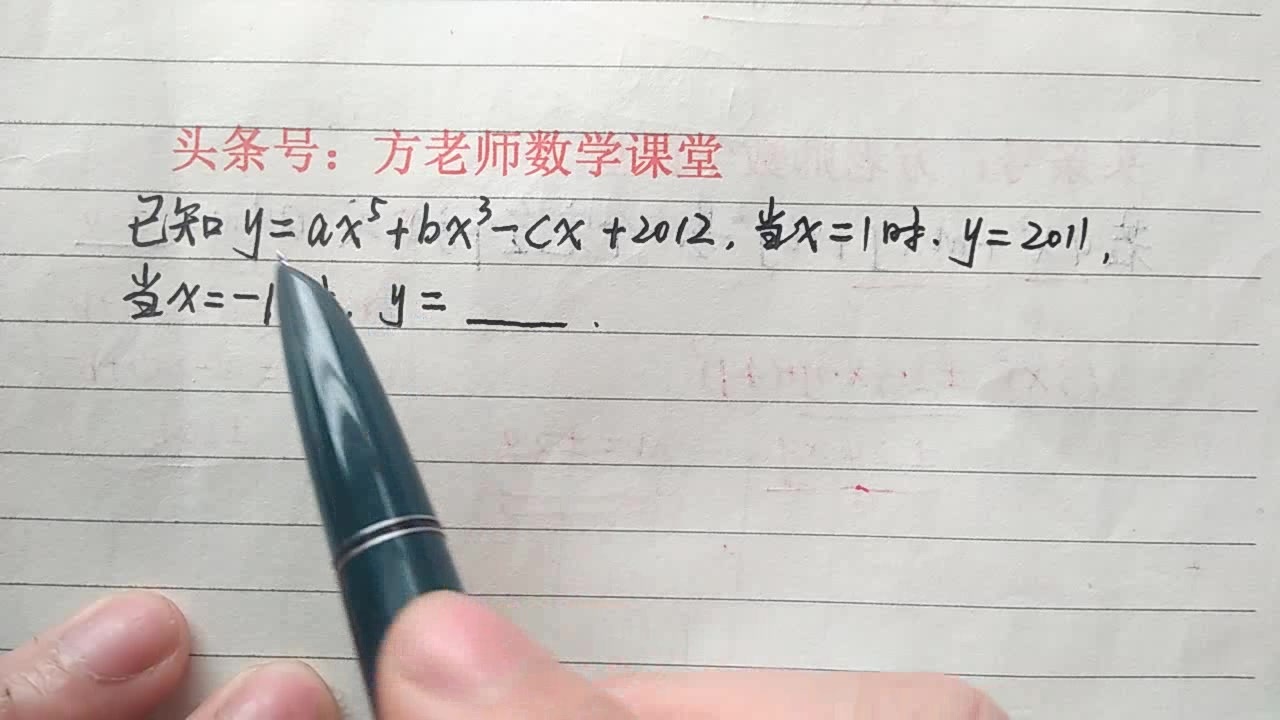 头条号：方老师数学课堂
已知 y=ax⁵+bx³-cx+2012, 当x=1时, y=2011,
当x=-1时, y= ____ .